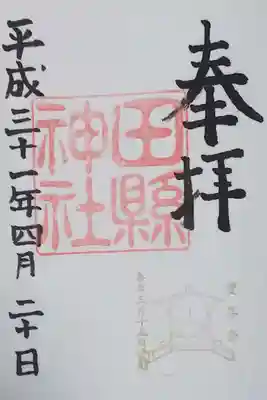 奉拝
田縣
神社
平成三十一年四月二十日